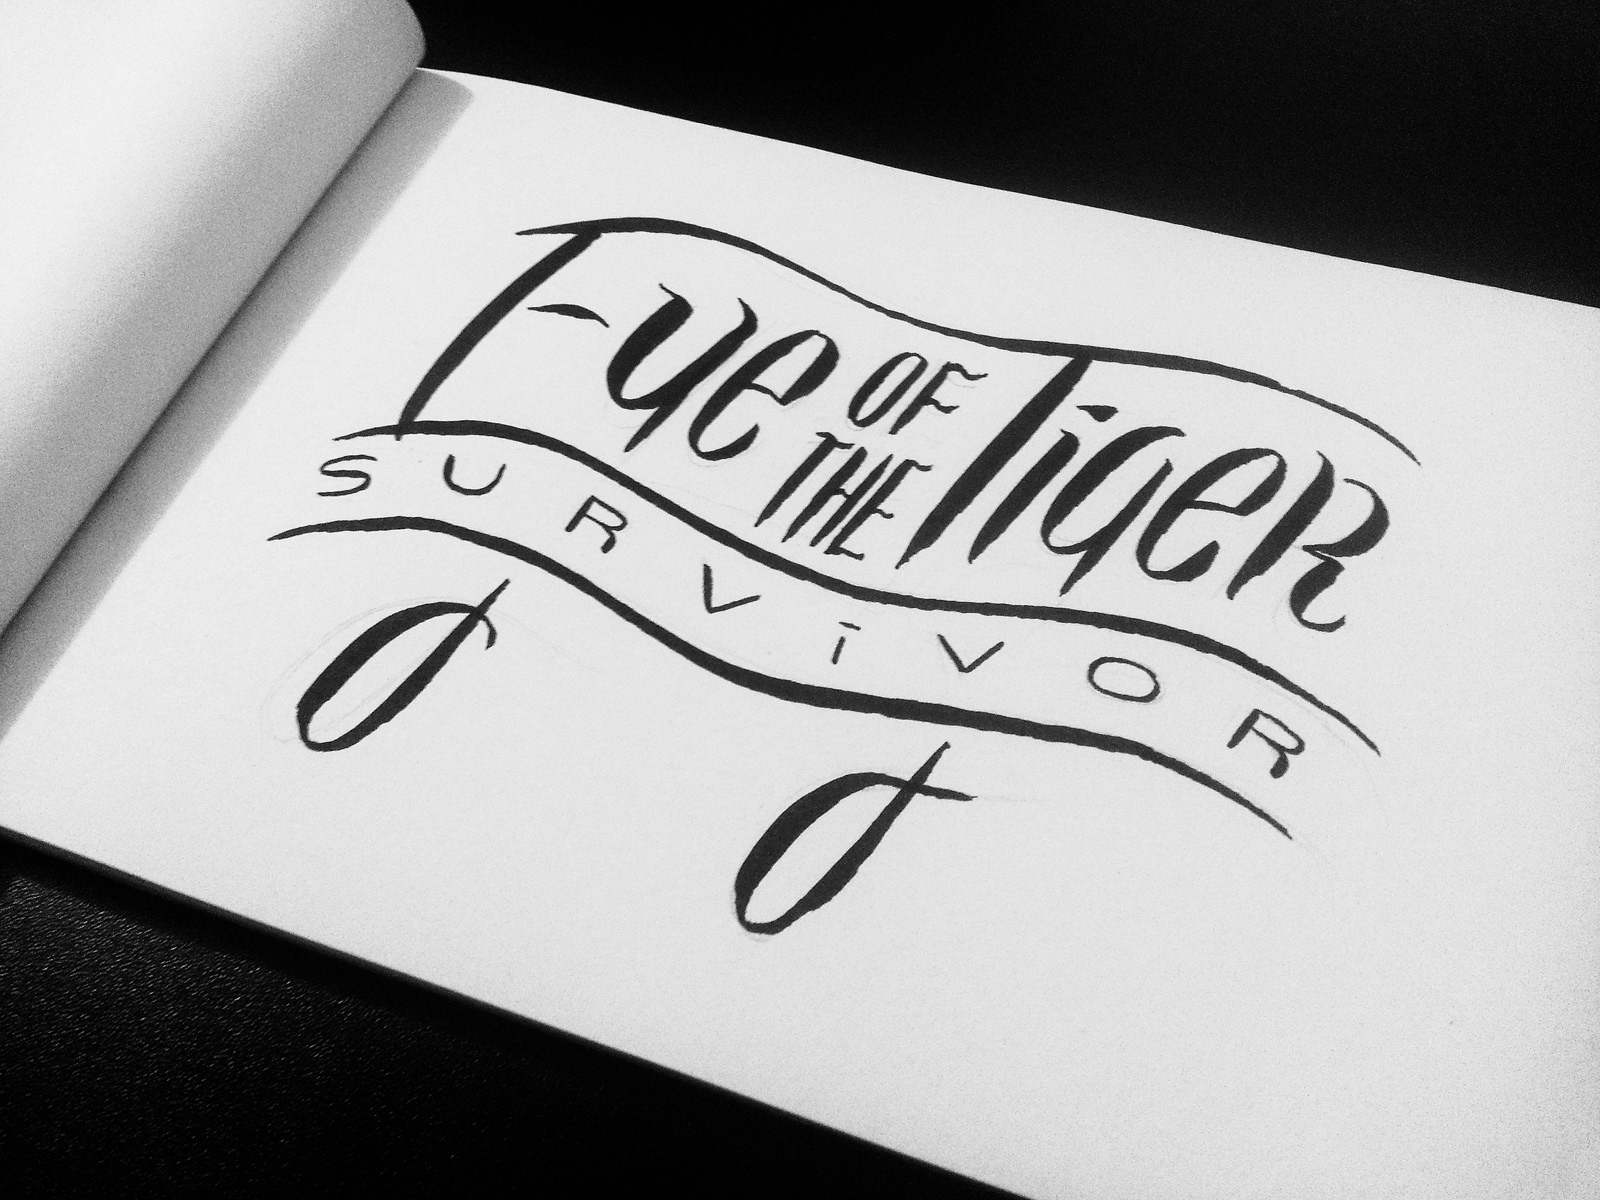 Eye OF THE TigeR
SURViVOR